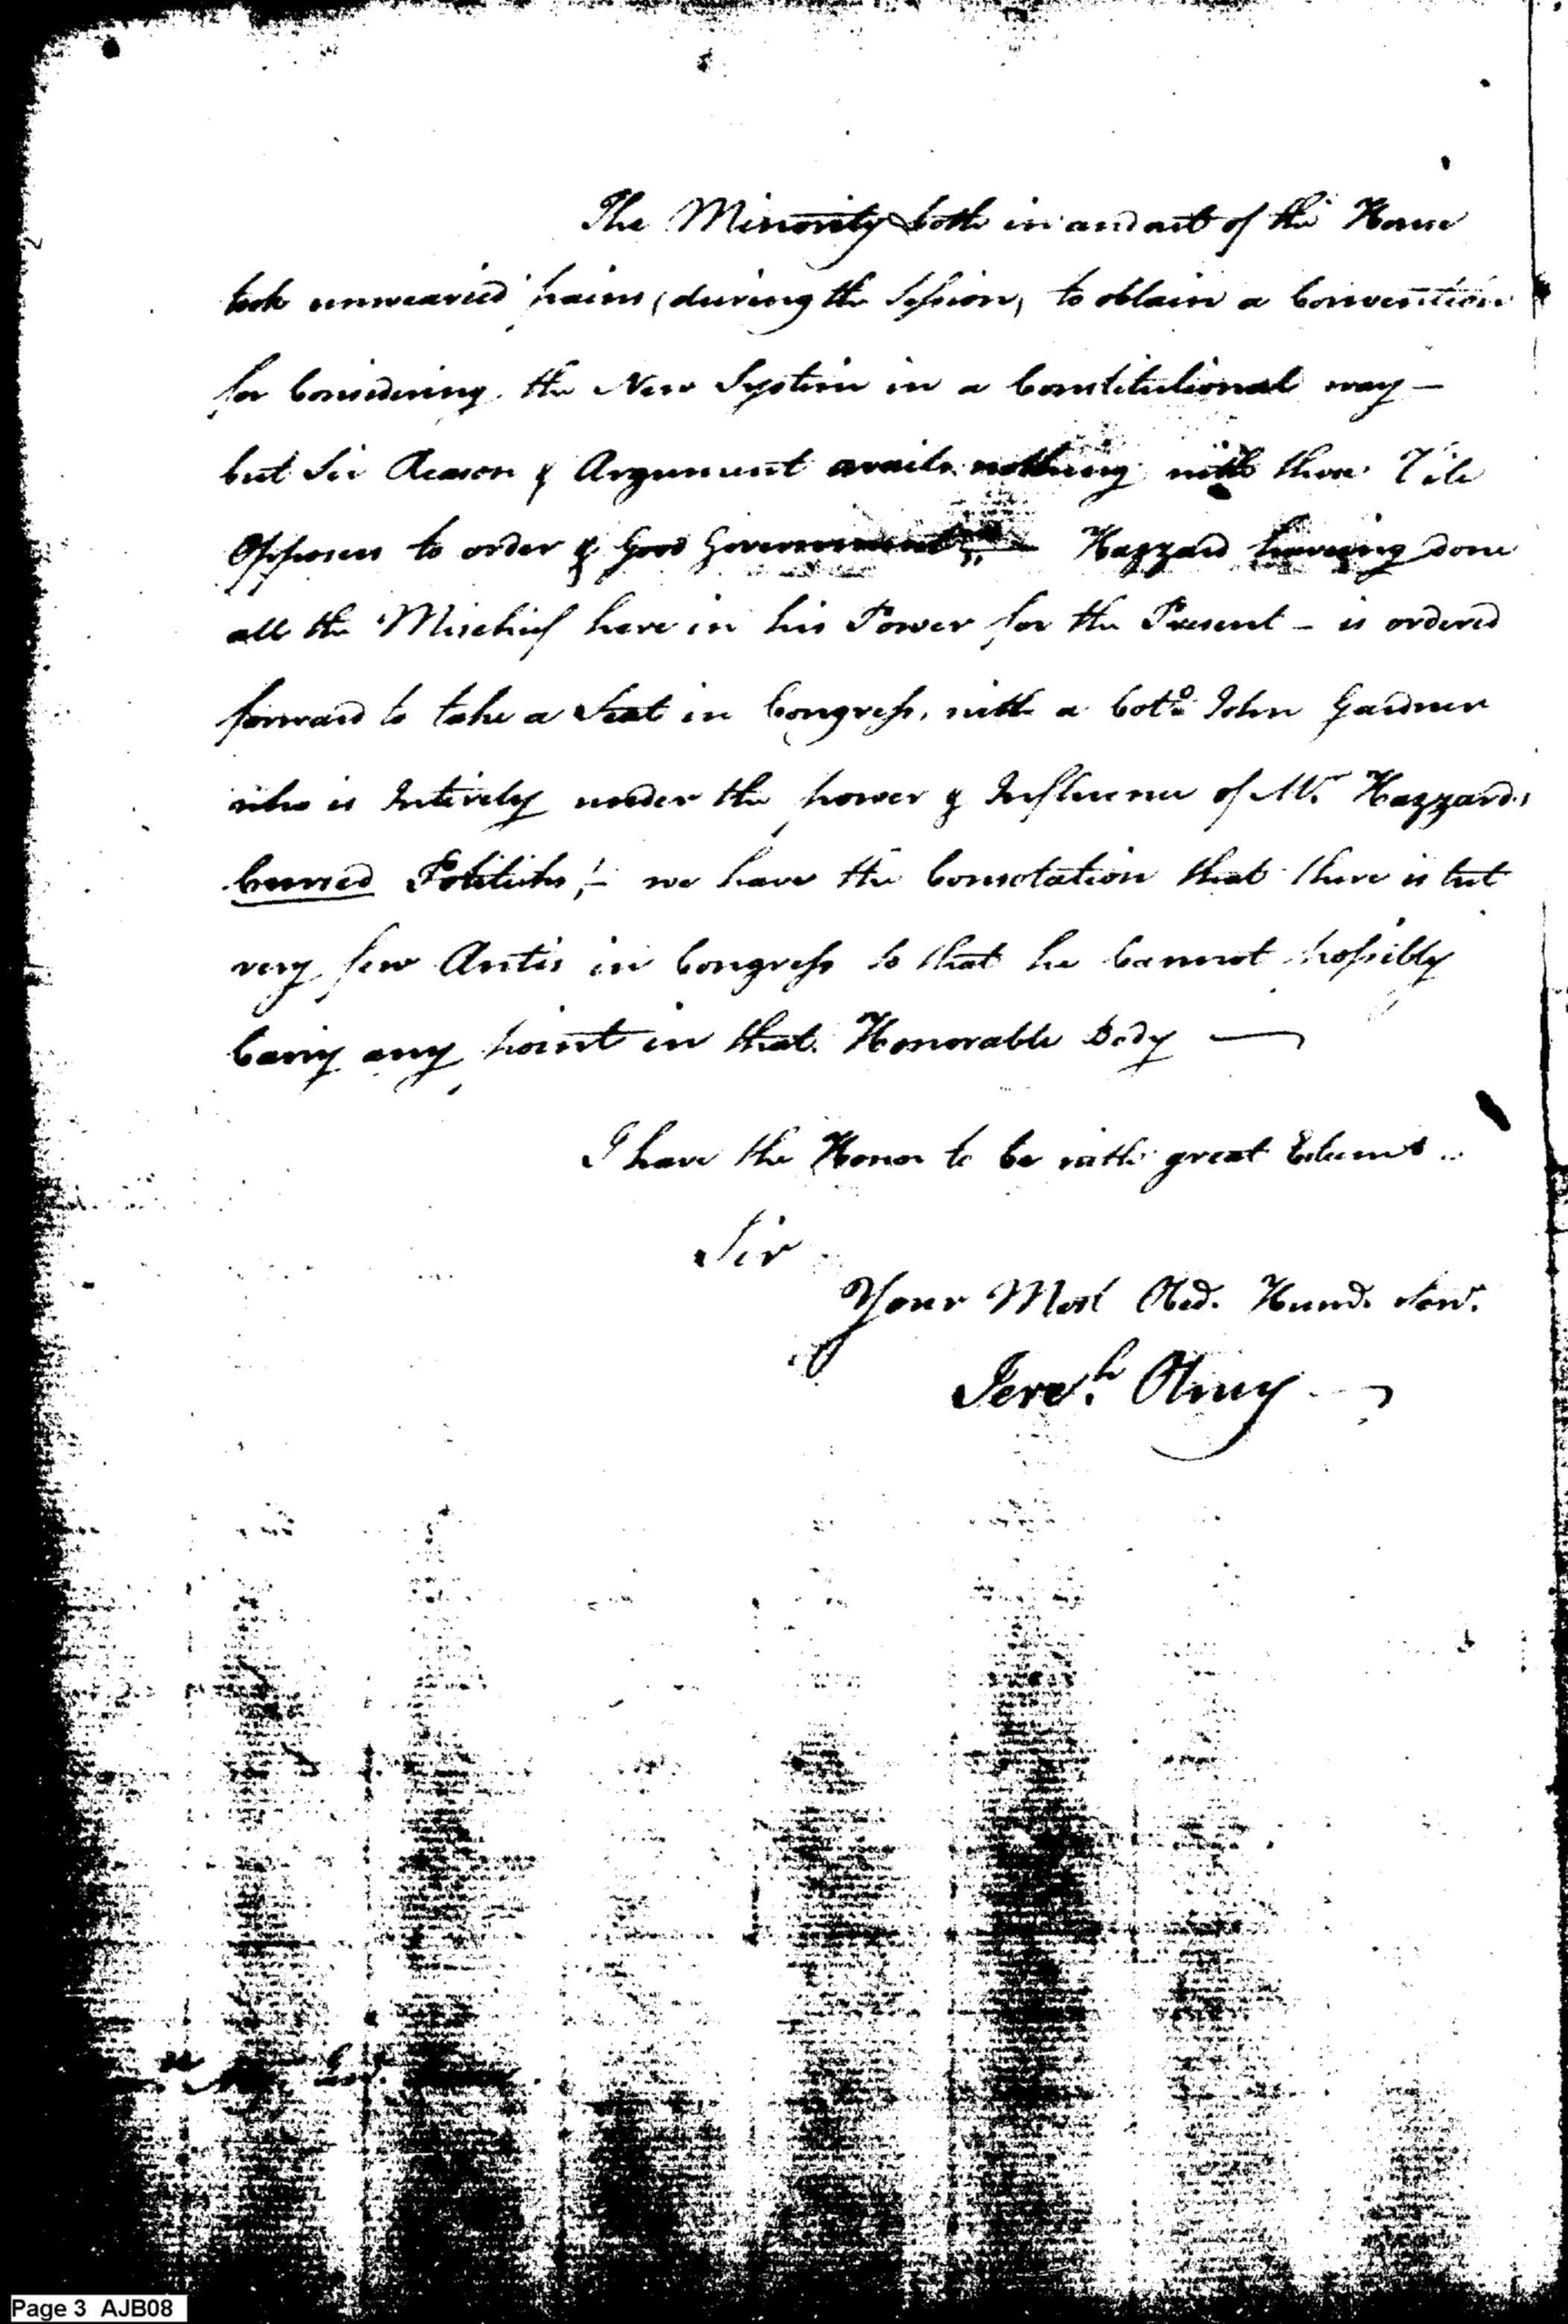 The Minority both in and out of the House
took unwearied pains (during the Session, to obtain a Convention
for Considering the New System in a Constitutional way —
but Sir Reason & Argument avails nothing with these Vile
Opposers to order & Good Government — Hazzard haveing done
all the Mischief here in his Power for the Present – is ordered
forward to take a Seat in Congress, with a Colo. John Gardner
who is Intirely under the power & Influence of Mr. Hazzards
Cursed Politicks! – we have the Consolation that there is but
very few Antis in Congress so that he Cannot possibly
Carry any point in that Honorable Body —
I have the Honor to be with great Esteem
Sir
Your Most Obed. Humb. Serv.
Jereh. Olney
Page 3 AJB08